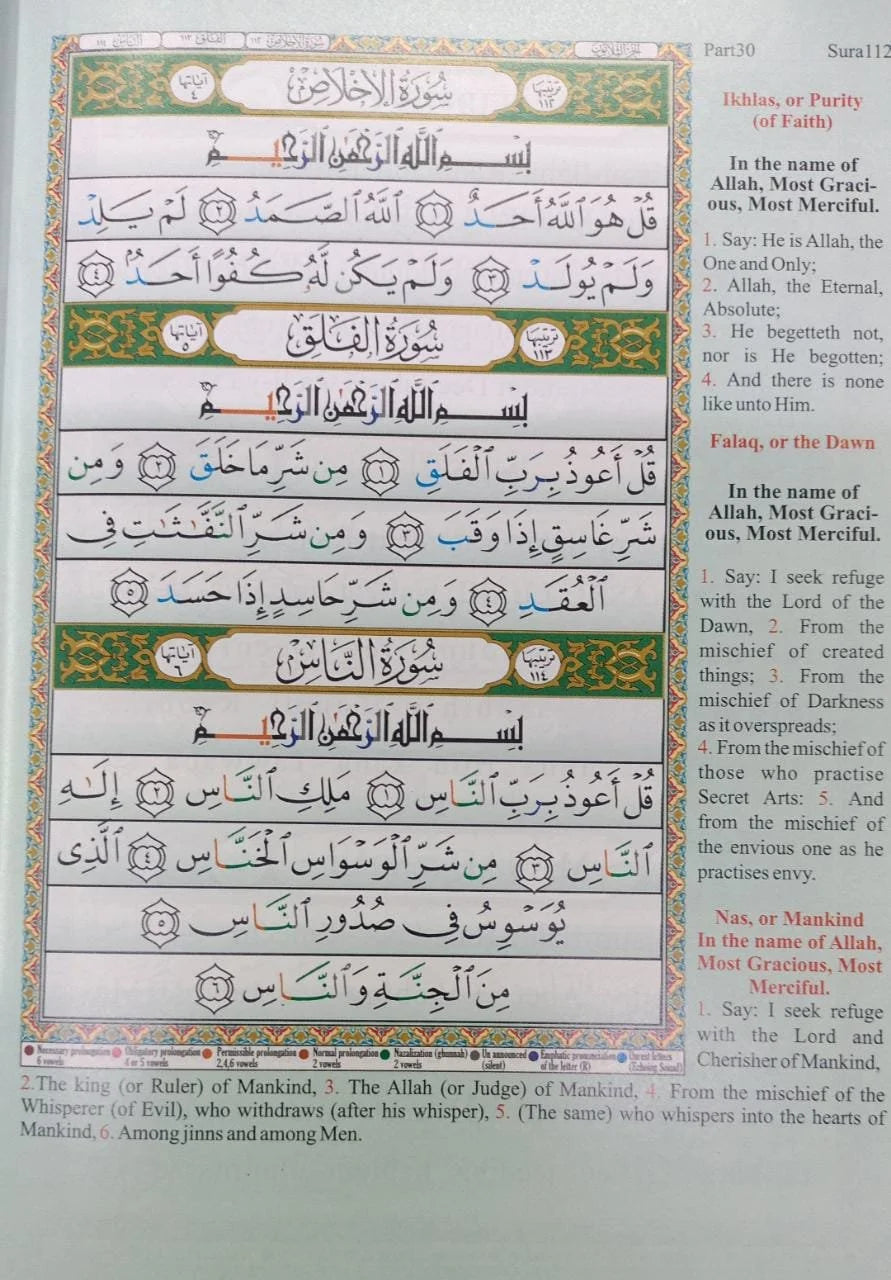 Part30 Sura112
سُورَةُ الإِخْلَاصِ
ترتيبها ١١٢
آياتها ٤
بِسْمِ ٱللَّهِ ٱلرَّحْمَٰنِ ٱلرَّحِيمِ
قُلْ هُوَ ٱللَّهُ أَحَدٌ ١ ٱللَّهُ ٱلصَّمَدُ ٢ لَمْ يَلِدْ
وَلَمْ يُولَدْ ٣ وَلَمْ يَكُن لَّهُۥ كُفُوًا أَحَدٌۢ ٤
سُورَةُ الْفَلَقِ
ترتيبها ١١٣
آياتها ٥
بِسْمِ ٱللَّهِ ٱلرَّحْمَٰنِ ٱلرَّحِيمِ
قُلْ أَعُوذُ بِرَبِّ ٱلْفَلَقِ ١ مِن شَرِّ مَا خَلَقَ ٢ وَمِن
شَرِّ غَاسِقٍ إِذَا وَقَبَ ٣ وَمِن شَرِّ ٱلنَّفَّٰثَٰتِ فِى
ٱلْعُقَدِ ٤ وَمِن شَرِّ حَاسِدٍ إِذَا حَسَدَ ٥
سُورَةُ النَّاسِ
ترتيبها ١١٤
آياتها ٦
بِسْمِ ٱللَّهِ ٱلرَّحْمَٰنِ ٱلرَّحِيمِ
قُلْ أَعُوذُ بِرَبِّ ٱلنَّاسِ ١ مَلِكِ ٱلنَّاسِ ٢ إِلَٰهِ
ٱلنَّاسِ ٣ مِن شَرِّ ٱلْوَسْوَاسِ ٱلْخَنَّاسِ ٤ ٱلَّذِى
يُوَسْوِسُ فِى صُدُورِ ٱلنَّاسِ ٥
مِنَ ٱلْجِنَّةِ وَٱلنَّاسِ ٦
Necessary prolongation 6 vowels
Obligatory prolongation 4 or 5 vowels
Permissible prolongation 2,4,6 vowels
Normal prolongation 2 vowels
Nazalization (ghunnah) 2 vowels
Un announced (silent)
Emphatic pronunciation of the letter (R)
(Echoing Sound)
Ikhlas, or Purity
(of Faith)
In the name of
Allah, Most Graci-
ous, Most Merciful.
1. Say: He is Allah, the
One and Only;
2. Allah, the Eternal,
Absolute;
3. He begetteth not,
nor is He begotten;
4. And there is none
like unto Him.
Falaq, or the Dawn
In the name of
Allah, Most Graci-
ous, Most Merciful.
1. Say: I seek refuge
with the Lord of the
Dawn, 2. From the
mischief of created
things; 3. From the
mischief of Darkness
as it overspreads;
4. From the mischief of
those who practise
Secret Arts: 5. And
from the mischief of
the envious one as he
practises envy.
Nas, or Mankind
In the name of Allah,
Most Gracious, Most
Merciful.
1. Say: I seek refuge
with the Lord and
Cherisher of Mankind,
2.The king (or Ruler) of Mankind, 3. The Allah (or Judge) of Mankind, 4. From the mischief of the
Whisperer (of Evil), who withdraws (after his whisper), 5. (The same) who whispers into the hearts of
Mankind, 6. Among jinns and among Men.